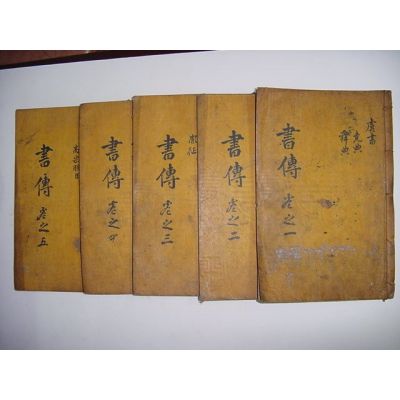 虞書
堯典
舜典
書傳 卷之一
書傳 卷之二
書傳 卷之三
書傳 卷之四
書傳 卷之五